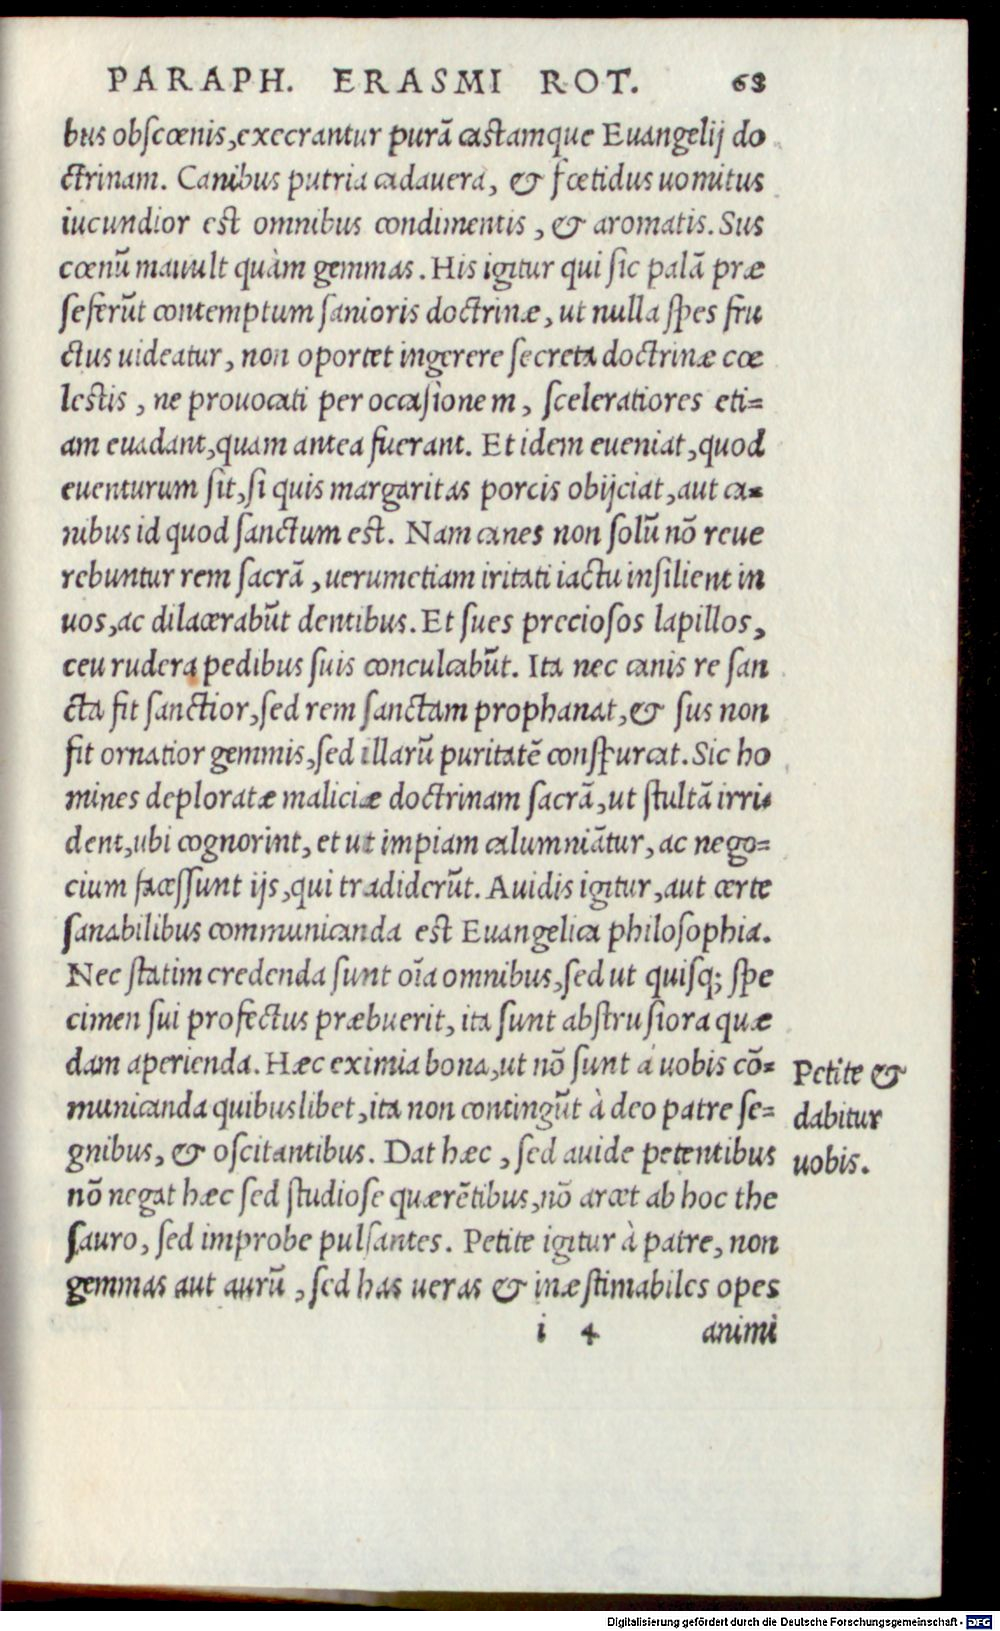 PARAPH. ERASMI ROT. 68
bus obscœnis, execrantur purã castamque Euangelij do
ctrinam. Canibus putria cadauera, & fœtidus uomitus
iucundior est omnibus condimentis, & aromatis. Sus
cœnũ mauult quàm gemmas. His igitur qui sic palã præ
seferũt contemptum sanioris doctrinæ, ut nulla spes fru
ctus uideatur, non oportet ingerere secreta doctrinæ cœ
lestis, ne prouocati per occasionem, sceleratiores eti=
am euadant, quam antea fuerant. Et idem eueniat, quod
euenturum sit, si quis margaritas porcis obijciat, aut ca=
nibus id quod sanctum est. Nam canes non solũ nõ reue
rebuntur rem sacrã, uerumetiam iritati iactu insilient in
uos, ac dilacerabũt dentibus. Et sues preciosos lapillos,
ceu rudera pedibus suis conculcabũt. Ita nec canis re san
cta fit sanctior, sed rem sanctam prophanat, & sus non
fit ornatior gemmis, sed illarũ puritatẽ conspurcat. Sic ho
mines deploratæ maliciæ doctrinam sacrã, ut stultã irri=
dent, ubi cognorint, et ut impiam calumniãtur, ac nego=
cium facessunt ijs, qui tradiderũt. Auidis igitur, aut certe
sanabilibus communicanda est Euangelica philosophia.
Nec statim credenda sunt oĩa omnibus, sed ut quisq; spe
cimen sui profectus præbuerit, ita sunt abstrusiora quæ
dam aperienda. Hæc eximia bona, ut nõ sunt à uobis cõ=
municanda quibuslibet, ita non contingũt à deo patre se=
gnibus, & oscitantibus. Dat hæc, sed auide petentibus
nõ negat hæc sed studiose quærẽtibus, nõ arcet ab hoc the
sauro, sed improbe pulsantes. Petite igitur à patre, non
gemmas aut aurũ, sed has ueras & inæstimabiles opes
i 4 animi
Petite &
dabitur
uobis.
Digitalisierung gefördert durch die Deutsche Forschungsgemeinschaft - DFG